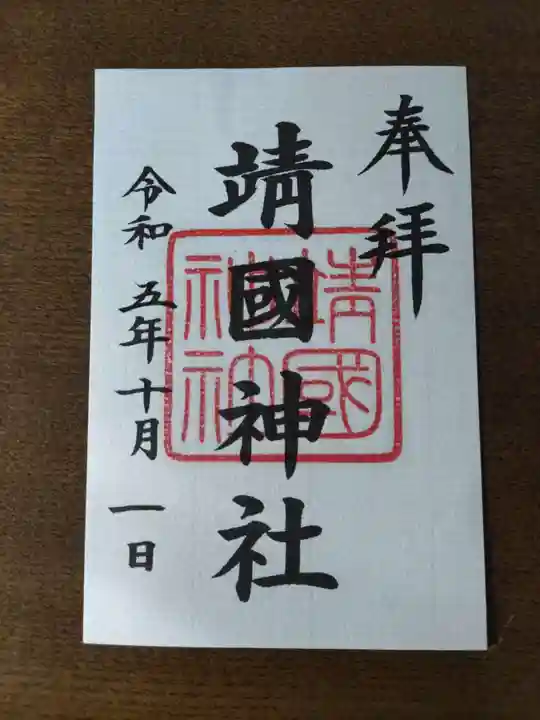 奉拝
靖國神社
靖國
神社
令和 五年 十月 一日